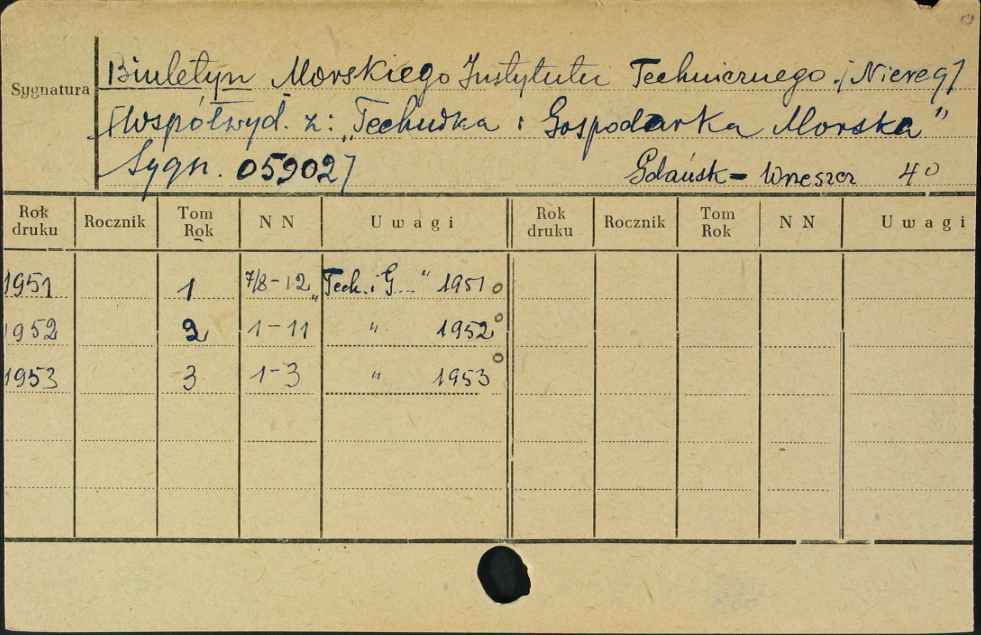 Sygnatura
Biuletyn Morskiego Instytutu Technicznego. /Niereg/
[Współwyd. z: „Technika i Gospodarka Morska”
Sygn. 05902]
Gdańsk - Wrzeszcz 4°
Rok druku Rocznik Tom Rok NN Uwagi Rok druku Rocznik Tom Rok NN Uwagi
1951 1 7/8-12 „Tech. i G...” 1951
1952 2 1-11 " 1952
1953 3 1-3 " 1953